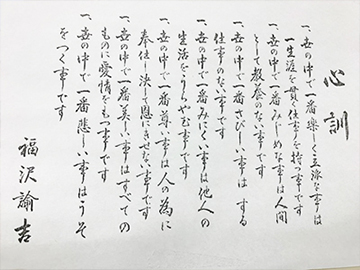 心訓
一、世の中で一番楽しく立派な事は
一生涯を貫く仕事を持つ事です
一、世の中で一番みじめな事は人間
として教養のない事です
一、世の中で一番さびしい事はする
仕事のない事です
一、世の中で一番みにくい事は他人の
生活をうらやむ事です
一、世の中で一番尊い事は人の為に
奉仕し決して恩にきせない事です
一、世の中で一番美しい事はすべての
ものに愛情をもつ事です
一、世の中で一番悲しい事はうそ
をつく事です
福沢諭吉